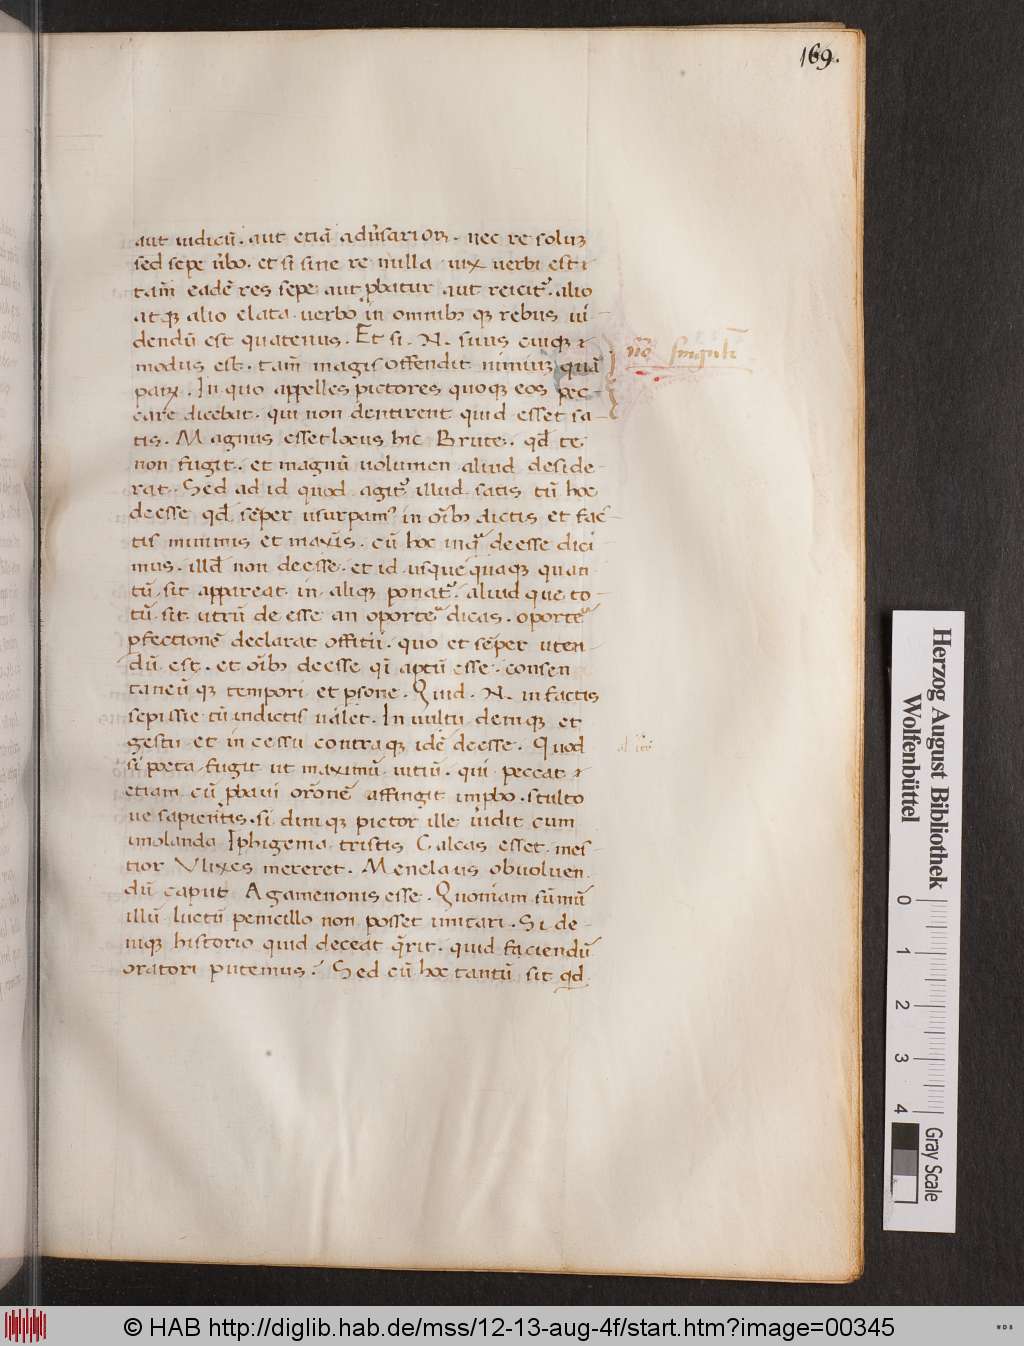 169.
aut iudicũ. aut etiã adũsarioꝝ. nec re soluꝫ
sed sepe ũbo. et si sine re nulla uix uerbi est
tam̃ eadẽ res sepe aut ꝓbatur aut reicit᷑. alio
atqꝫ alio elata uerbo in omnibꝫ qꝫ rebus ui
dendũ est quatenus. Et si .N. suus cuiqꝫ
modus est. tam̃ magis offendit nimiuꝫ quã
paꝝ. In quo appelles pictores quoqꝫ eos pec
care dicebat. qui non sentirent quid esset sa
tis. Magnus esset locus hic Brute. qđ te
non fugit. et magnũ uolumen aliud deside
rat. Sed ad id quod agit᷑ illud satis cũ hoc
deesse qđ sẽper usurpamꝰ in oĩbꝫ dictis et fac
tis minimis et maxĩs. cũ hoc inq̃ deesse dici
mus. illđ non deesse. et id usquequaqꝫ quan
tũ sit appareat in aliqꝫ ponat᷑. aliud que to
tũ sit utrũ deesse an oporte᷑ dicas. oporte᷑
ꝑfectionẽ declarat offitii. quo et sẽper uten
dũ est. et oĩbꝫ deesse qĩ aptũ esse. consen
taneũ qꝫ tempori et ꝑsone. Quid .N. in factis
sepissie tũ indictis ualet. In uultu deniqꝫ et
gestu et in cessu contraqꝫ idẽ deesse. Quod
si poeta fugit ut maximũ uitiũ. qui peccat
etiam cũ ꝓbaui or̃onẽ affingit impbo. stulto
ue sapientis. si diniqꝫ pictor ille uidit cum
imolanda Iphigenia tristis Calcas esset. mes
tior Vlixes mereret. Menelaus obuoluen
dũ caput Agamenonis esse. Quoniam sũmũ
illũ luctũ penicillo non posset imitari. Si de
niqꝫ historio quid deceat q̃rit. quid faciendũ
oratori putemus. Sed cũ hoc tantũ sit qđ
Herzog August Bibliothek
Wolfenbüttel
0 1 2 3 4
Gray Scale
© HAB http://diglib.hab.de/mss/12-13-aug-4f/start.htm?image=00345